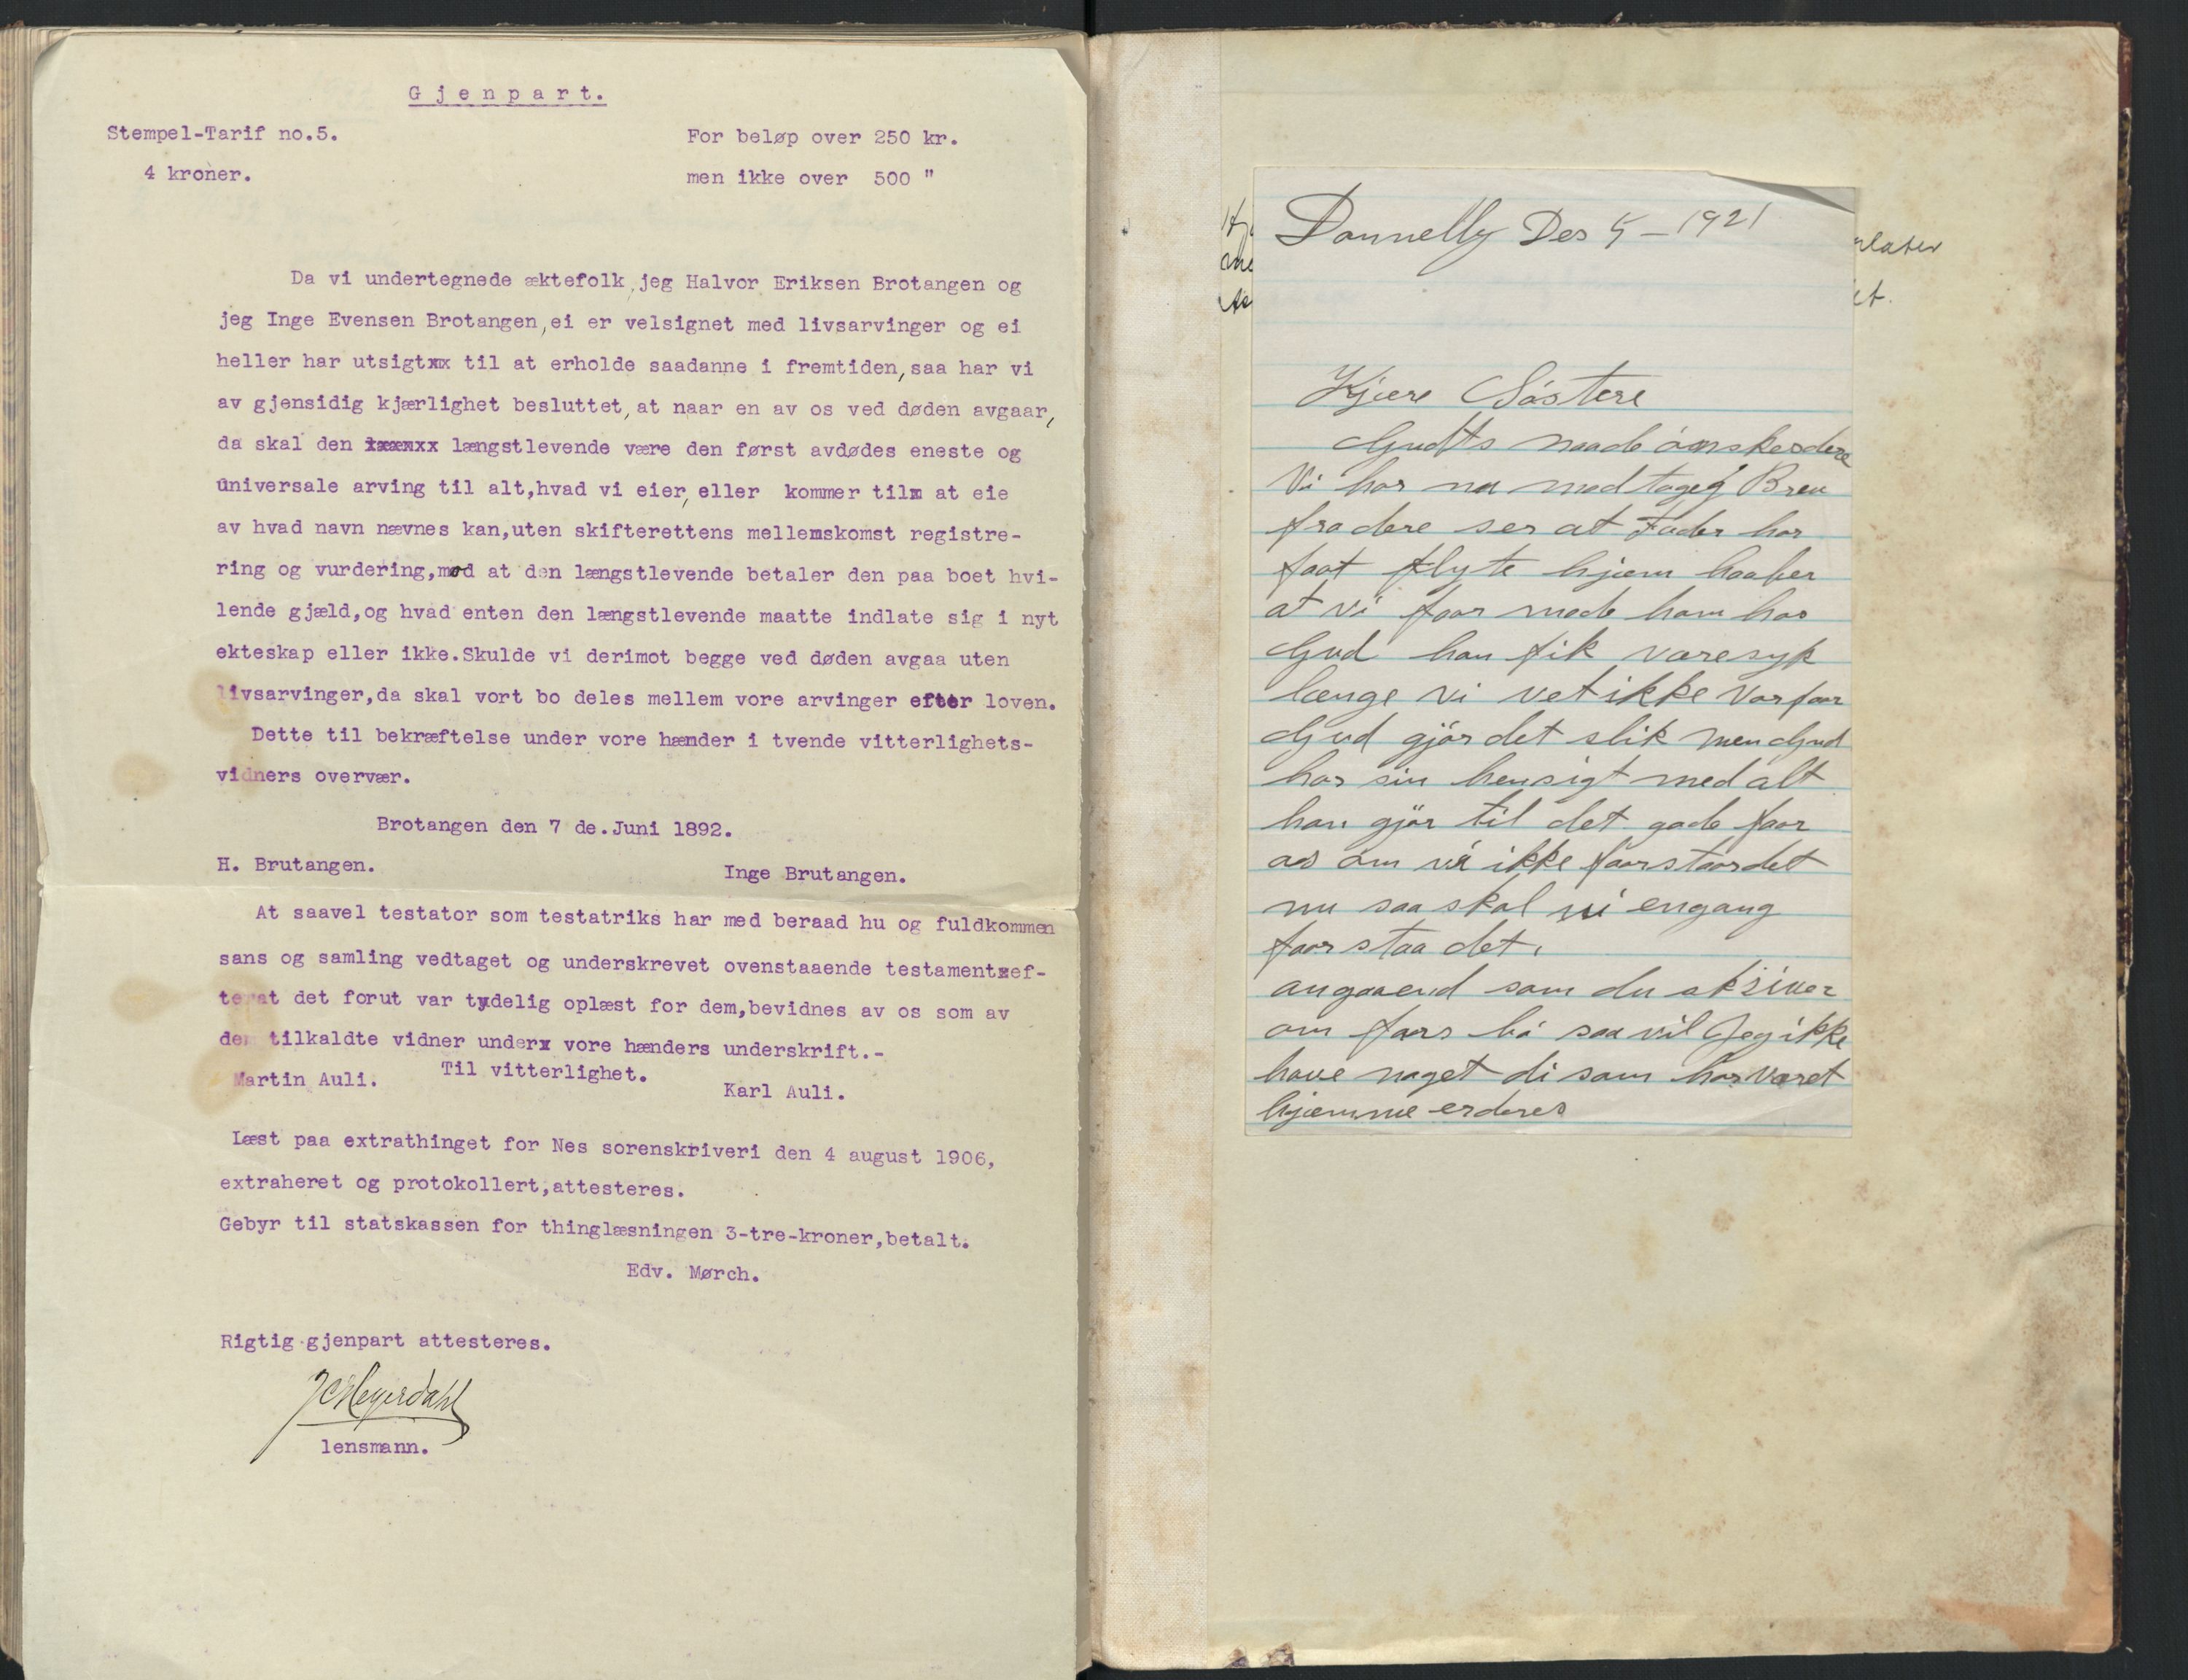 Gjenpart.
Stempel-Tarif no.5.
4 kroner.
For beløp over 250 kr.
men ikke over 500 "
Da vi undertegnede æktefolk, jeg Halvor Eriksen Brotangen og
jeg Inge Evensen Brotangen, ei er velsignet med livsarvinger og ei
heller har utsigtxx til at erholde saadanne i fremtiden, saa har vi
av gjensidig kjærlighet besluttet, at naar en av os ved døden avgaar,
da skal den længstlevende være den først avdødes eneste og
universale arving til alt,hvad vi eier, eller kommer til at eie
av hvad navn nævnes kan,uten skifterettens mellemskomst registre-
ring og vurdering,mod at den længstlevende betaler den paa boet hvi-
lende gjæld,og hvad enten den længstlevende maatte indlate sig i nyt
ekteskap eller ikke.Skulde vi derimot begge ved døden avgaa uten
livsarvinger,da skal vort bo deles mellem vore arvinger efter loven.
Dette til bekræftelse under vore hænder i tvende vitterlighets-
vidners overvær.
Brotangen den 7 de.Juni 1892.
H. Brutangen.
Inge Brutangen.
At saavel testator som testatriks har med beraad hu og fuldkommen
sans og samling vedtaget og underskrevet ovenstaaende testamentxef-
terat det forut var tydelig oplæst for dem,bevidnes av os som av
dem tilkaldte vidner underx vore hænders underskrift.-
Til vitterlighet.
Martin Auli.
Karl Auli.
Læst paa extrathinget for Nes sorenskriveri den 4 august 1906,
extraheret og protokollert,attesteres.
Gebyr til statskassen for thinglæsningen 3-tre-kroner,betalt.
Edv. Mørch.
Rigtig gjenpart attesteres.
JCHeyerdahl
lensmann.
Donnelly Des 5 - 1921
Kjære Søstere
Gudts naade ønskes dere
Vi har nu modtaget Brev
fra dere ser at Fader har
faat flyte hjem haaber
at vi faar møde ham hos
Gud han fik være syk
længe vi vet ikke Vorfor
Gud gjør det slik men Gud
har sin hensigt med alt
han gjør til det gode faar
os om vi ikke faarstaar det
nu saa skal vi engang
faarstaa det.
angaaend som du skriver
om fars bo saa vil Jeg ikke
have noget di som har været
hjemme er deres